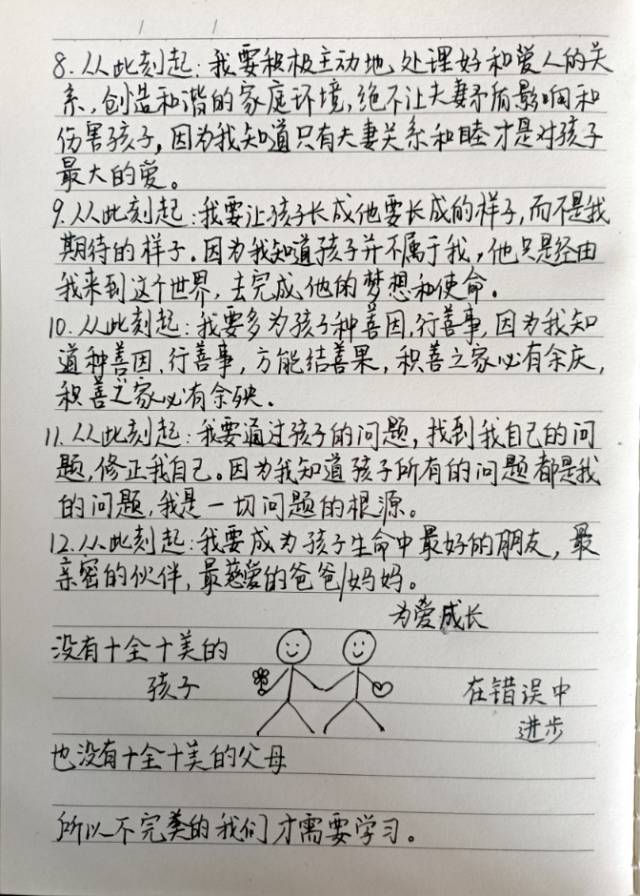 8.从此刻起：我要积极主动地处理好和爱人的关
系，创造和谐的家庭环境，绝不让夫妻矛盾影响和
伤害孩子，因为我知道只有夫妻关系和睦才是对孩子
最大的爱。
9.从此刻起：我要让孩子长成他要长成的样子，而不是我
期待的样子。因为我知道孩子并不属于我，他只是经由
我来到这个世界，去完成他的梦想和使命。
10.从此刻起：我要多为孩子种善因，行善事，因为我知
道种善因，行善事，方能结善果，积善之家必有余庆，
积善之家必有余殃。
11.从此刻起：我要通过孩子的问题，找到我自己的问
题，修正我自己。因为我知道孩子所有的问题都是我
的问题，我是一切问题的根源。
12.从此刻起：我要成为孩子生命中最好的朋友，最
亲密的伙伴，最慈爱的爸爸/妈妈。
为爱成长
没有十全十美的
孩子
在错误中
进步
也没有十全十美的父母
所以不完美的我们才需要学习。